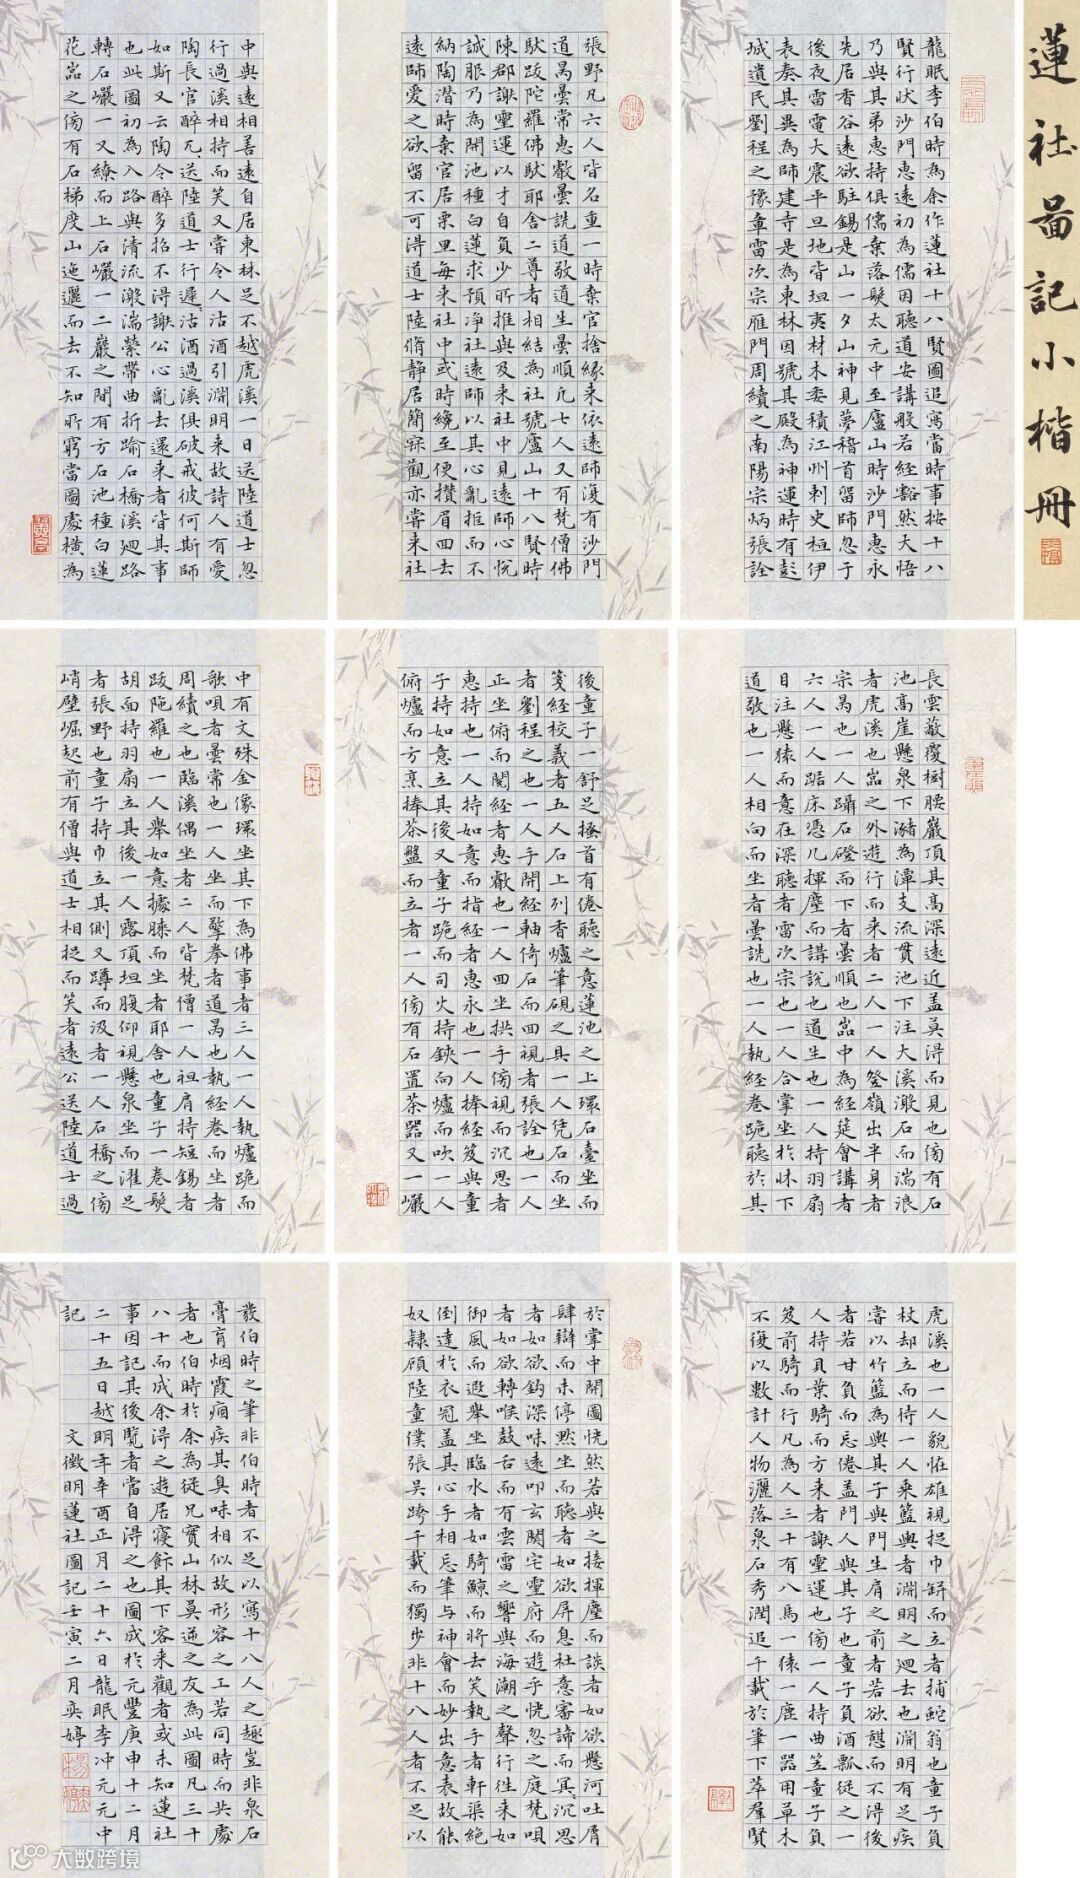 蓮社啚記小楷冊
龍眠李伯時為余作蓮社十八賢圖追寫當時事按十八
賢行狀沙門惠遠初為儒因聽道安講般若經豁然大悟
乃與其弟惠持俱儒棄落髮太元中至廬山時沙門惠永
先居香谷遠欲駐錫是山一夕山神見夢稽首留師忽于
後夜雷電大震平旦地皆坦夷材木委積江州刺史桓伊
表奏其異為師建寺是為東林因號其殿為神運時有彭
城遺民劉程之豫章雷次宗雁門周續之南陽宗炳張詮
張野凡六人皆名重一時棄官捨緣来依遠師復有沙門
道昺曇常惠叡曇詵道敬道生曇順凡七人又有梵僧佛
馱跋陀羅佛馱耶舍二尊者相結為社號廬山十八賢時
陳郡謝靈運以才自負少所推與及来社中見遠師心悅
誠服乃為開池種白蓮求預浄社遠師以其心亂拒而不
納陶潛時棄官居栗里每来社中或時繞至便攢眉回去
遠師愛之欲留不可得道士陸脩静居簡寂觀亦嘗来社
中與遠相善遠自居東林足不越虎溪一日送陸道士忽
行過溪相持而笑又嘗令人沽酒引淵明来故詩人有愛
陶長官醉兀〻送陸道士行遲〻沽酒過溪俱破戒彼何斯師
如斯又云陶令醉多招不得謝公心亂去還来者皆其事
也此圖初為入路與清流激湍縈帶曲折踰石橋溪迴路
轉石巖一又繚而上石巖一二巖之間有方石池種白蓮
花嵓之傍有石梯度山迤邐而去不知所窮當圖處橫為
長雲蔽覆樹腰巖頂其高深遠近盖莫得而見也傍有石
池高崖懸泉下瀦為潭支流貫池下注大溪激石而湍浪
者虎溪也嵓之外遊行而来者二人一人登嶺出半身者
宗昺也一人躡石磴而下者曇順也嵓中為經筵會講者
六人一人踞床憑几揮麈而講說也道生也一人持羽扇
目注懸猿而意在深聽者雷次宗也一人合掌坐於牀下
道敬也一人相向而坐者曇詵也一人執經卷跪聽於其
後童子一舒足搔首有倦聽之意蓮池之上環石臺坐而
箋經校義者五人石上列香爐筆硯之具一人凭石而坐
者劉程之也一人手開經軸倚石而回視者張詮也一人
正坐俯而閱經者惠叡也一人回坐拱手傍視而沉思者
惠持也一人持如意而指經者惠永也一人捧經笈與童
子持如意立其後又童子跪而司火持鋏向爐而吹一人
俯爐而方烹捧茶盤而立者一人傍有石置茶器又一巖
中有文殊金像環坐其下為佛事者三人一人執爐跪而
歌唄者曇常也一人坐而擎拳者道昺也執經卷而坐者
周續之也臨溪偶坐者二人皆梵僧一人袒肩持短錫者
跋陁羅也一人舉如意據膝而坐者耶舍也童子一卷髮
胡面持羽扇立其後一人露頂坦腹仰視懸泉坐而濯足
者張野也童子持巾立其側又蹲而汲者一人石橋之傍
峭壁崛起前有僧與道士相捉而笑者遠公送陸道士過
虎溪也一人貌恠雄視捉巾鉼而立者捕蛇翁也童子負
杖却立而待一人乘籃輿者淵明之廻去也淵明有足疾
嘗以竹籃為輿其子與門生肩之前者若欲憩而不得後
者若甘負而忘倦盖門人與其子也童子負酒瓢従之一
人持貝葉騎而方来者謝靈運也傍一人持曲笠童子負
笈前騎而行凡為人三十有八馬一猿一鹿一器用草木
不復以數計人物灑落泉石秀潤追千載於筆下萃群賢
於掌中開圖恍然若與之接揮麈而談者如欲懸河吐屑
肆辯而未停黙坐而聽者如欲屏息杜意審諦而冥沉思
者如欲鈎深味遠叩玄關宅靈府而遊乎恍忽之庭梵唄
者如欲轉喉鼓舌而有雲雷之響與海潮之聲行徃来如
御風而遐舉坐臨水者如騎鯨而將去笑執手者軒渠絕
倒達於衣冠盖其心手相忘筆与神會而妙出意表故能
奴隸顧陸童僕張吴跨千載而獨步非十八人者不足以
發伯時之筆非伯時者不足以寫十八人之趣豈非泉石
膏肓烟霞痼疾其臭味相似故形容之工若同時而共處
者也伯時於余為從兄實山林莫逆之友為此圖凡三十
八十而成余得之遊居寢飰其下客来觀者或未知蓮社
事因記其後覽者當自得之也圖成於元豐庚申十二月
二十五日越明年辛酉正月二十六日龍眠李冲元元中
記　文徵明蓮社圖記壬寅二月奕婷
大数跨境